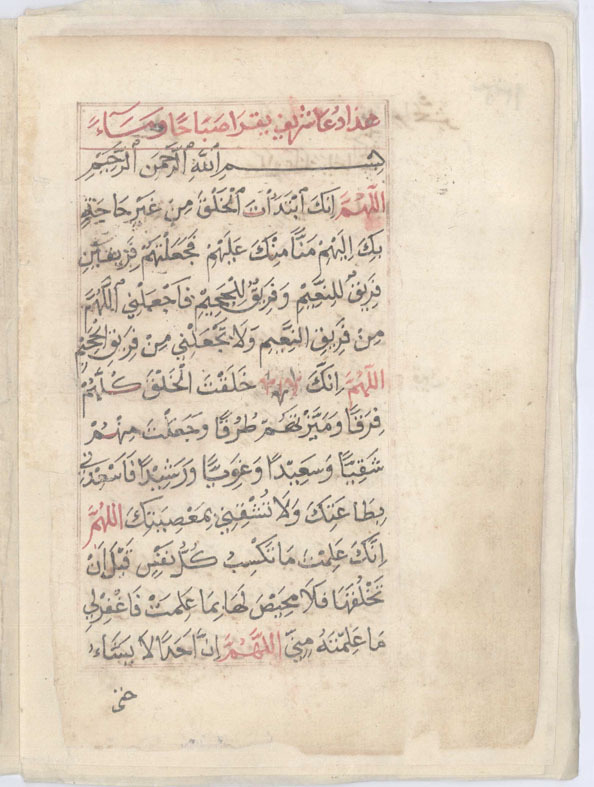 هذا دعا شريف يقرا صباحًا ومسآءً
بسم الله الرحمن الرحيم
اللهم انك ابتدات الخلق من غير حاجة
بك اليهم منّا منك عليهم فجعلتهم فريقين
فريق للنعيم وفريق للجحيم فاجعلني اللهم
من فريق النعيم ولا تجعلني من فريق الجحيم
اللهم انك خلقت الخلق كلهم
فرقًا وميزتهم طرقًا وجعلت منهم
شقيًّا وسعيدًا وغويًّا ورشيدًا فاسعدني
بطاعتك ولا تشقيني بمعصيتك اللهم
انك علمت ما تكسب كل نفس قبل ان
تخلقها فلا محيص لها بما علمت فاغفر لي
ما علمته مني اللهم ان احدا لا يشاء
حتى